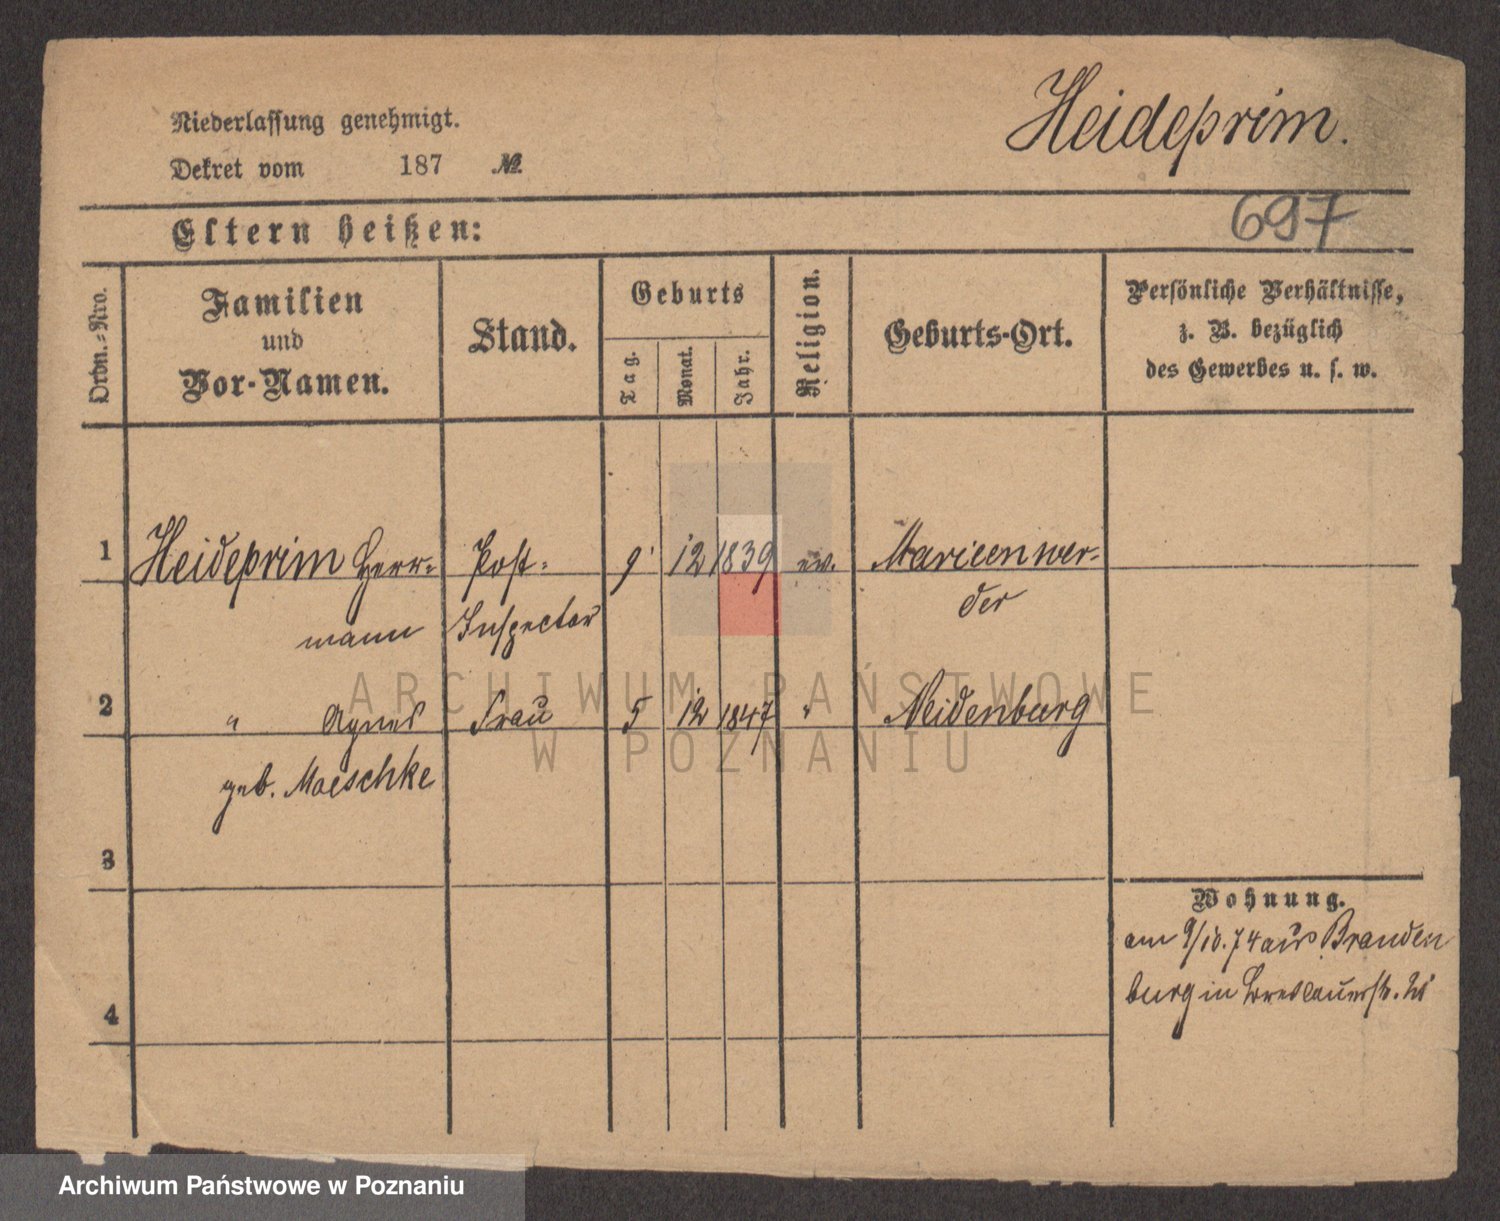 Niederlassung genehmigt.
Heideprim.
Dekret vom 187 №
Eltern heißen:
697
Ordn.-Nro.
Familien
und
Vor-Namen.
Stand.
Geburts
Tag.
Monat.
Jahr.
Religion.
Geburts-Ort.
Persönliche Verhältnisse,
z. B. bezüglich
des Gewerbes u. s. w.
1 Heideprim Herr- Post- 9 12 1839 ev. Marieenwer-
mann Inspector der
2 " Agnes Frau 5 12 1847 " Neidenburg
geb. Maeschke
3
Wohnung.
am 9/10.74 aus Branden
burg in Breslauerstr.
4
ARCHIWUM PAŃSTWOWE
W POZNANIU
Archiwum Państwowe w Poznaniu